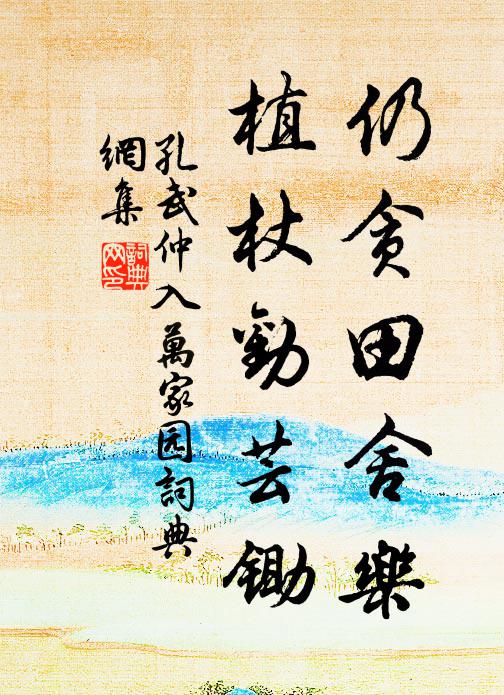 仍贪田舍樂
植杖勸芸鋤
孔武仲入萬家园詞典
網集
詞典
网印